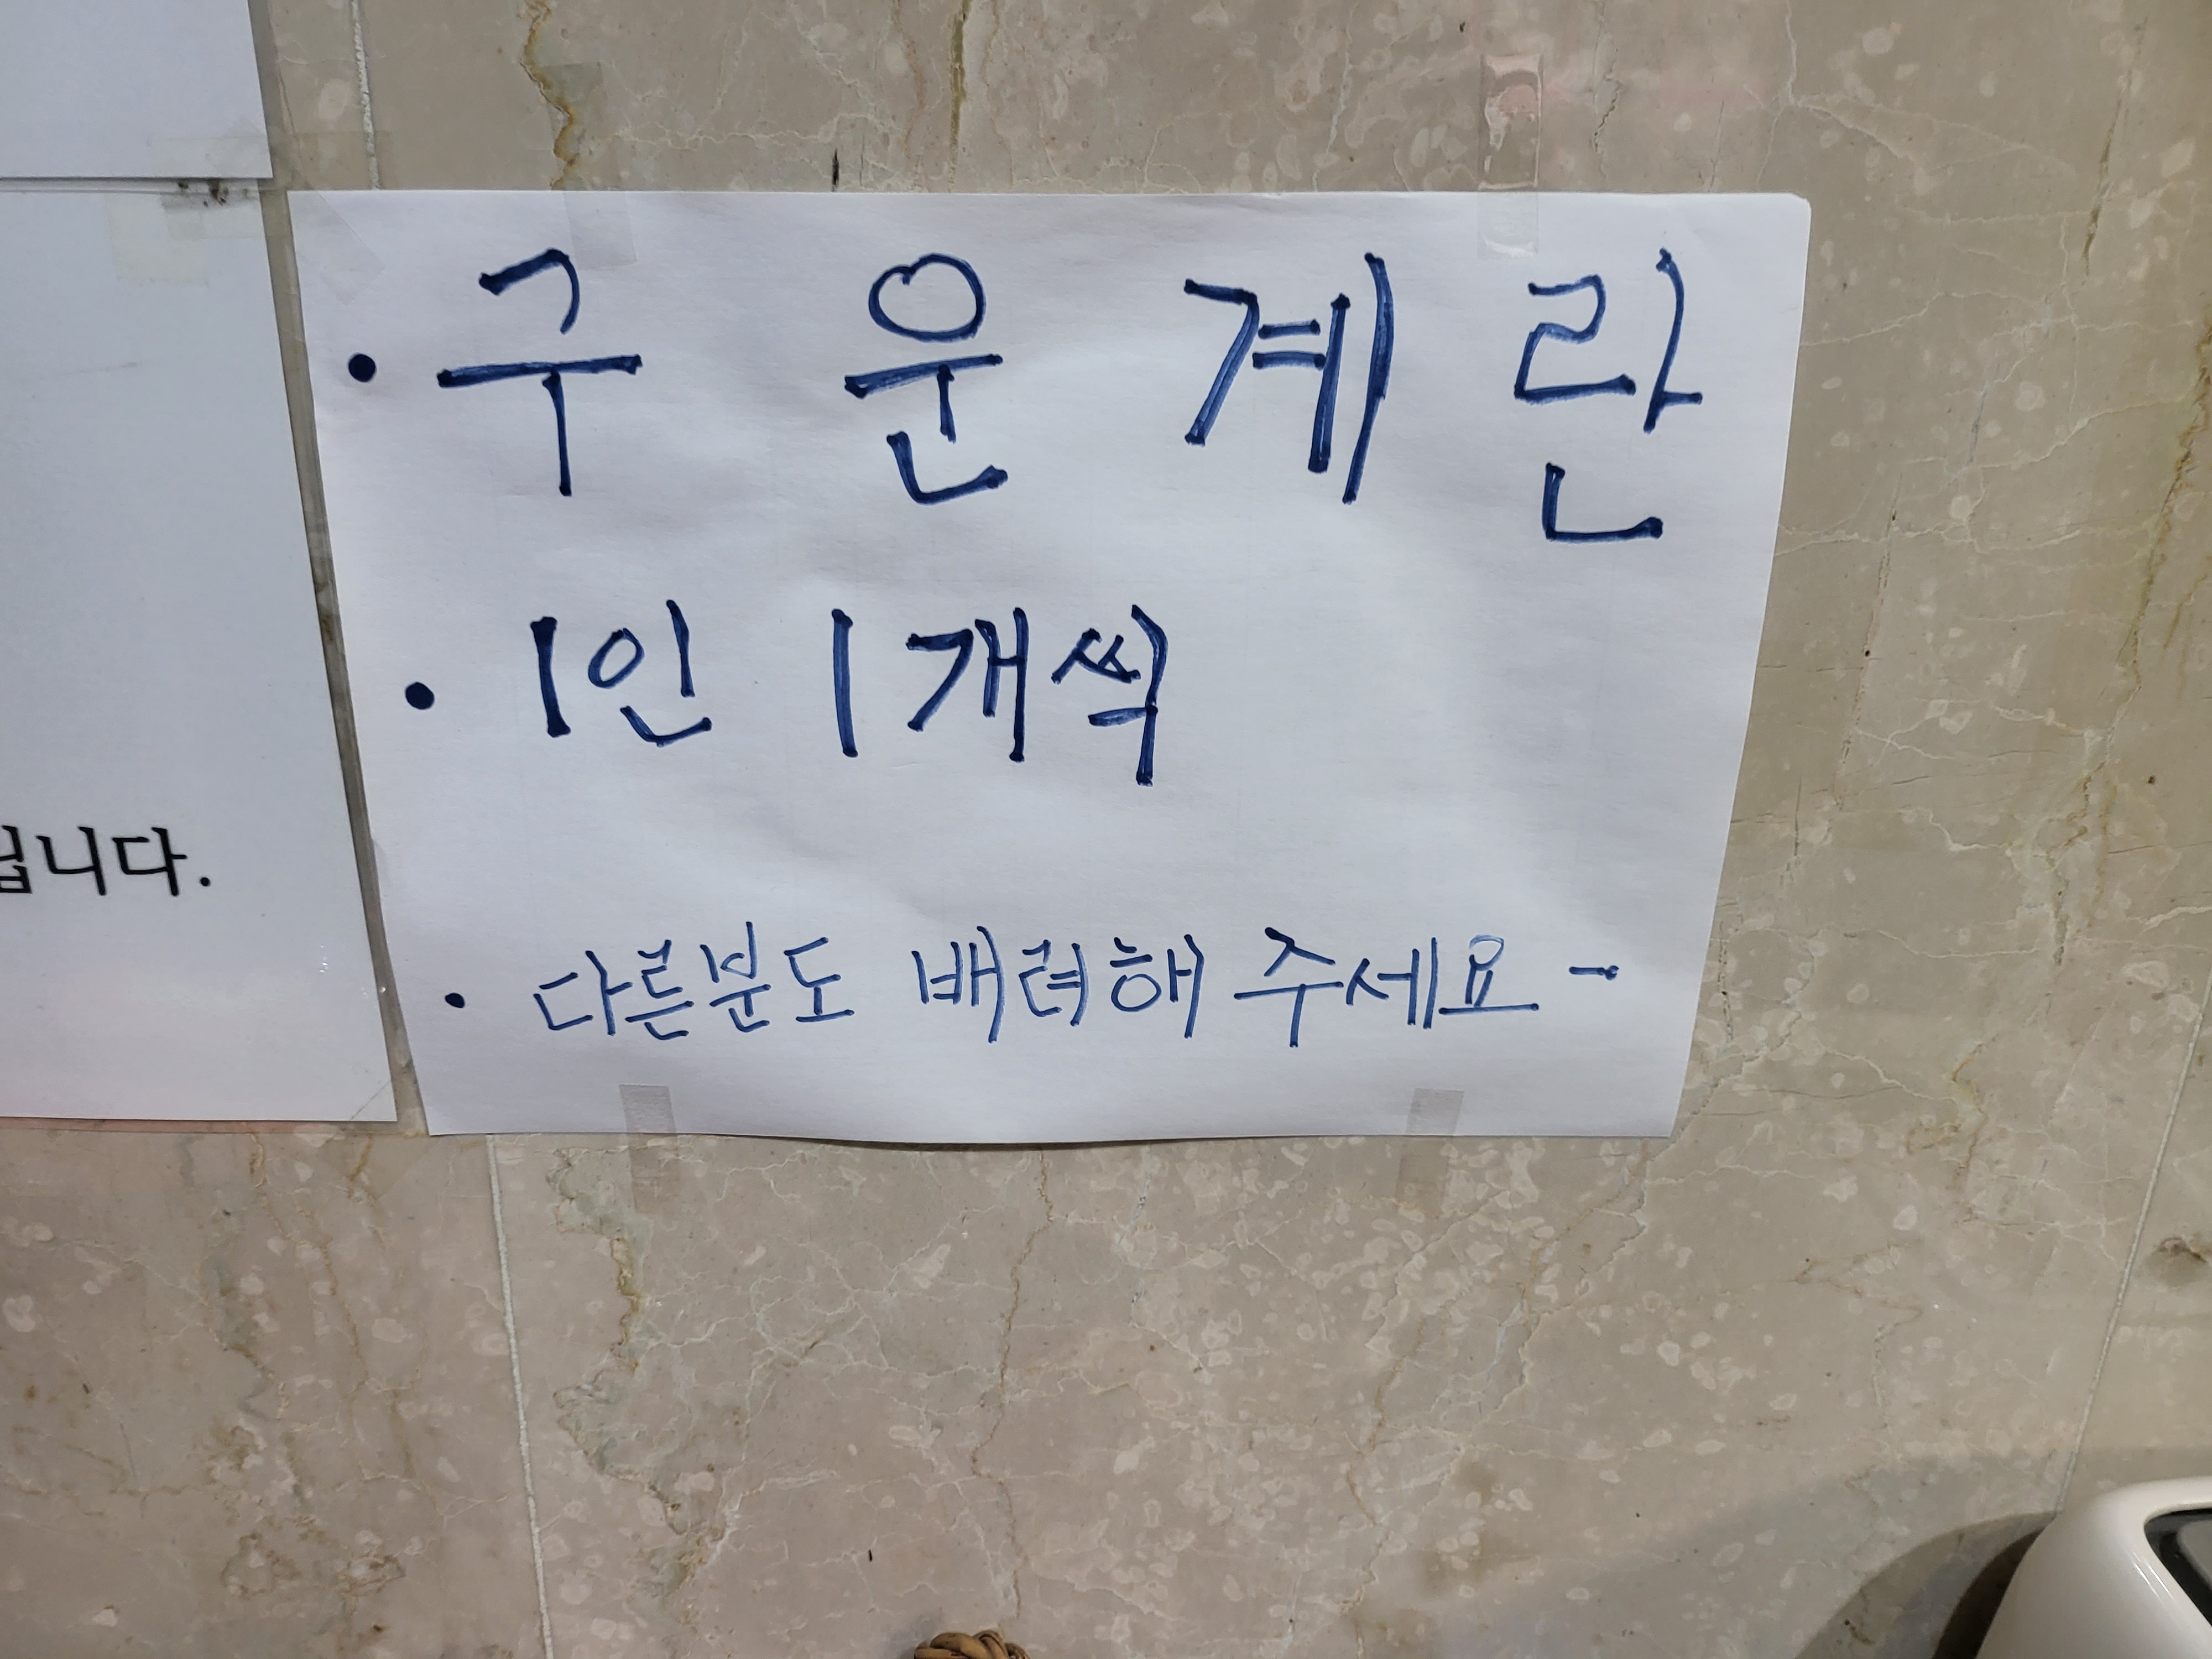 • 구운계란
• 1인 1개씩
• 다른분도 배려해 주세요~
니다.